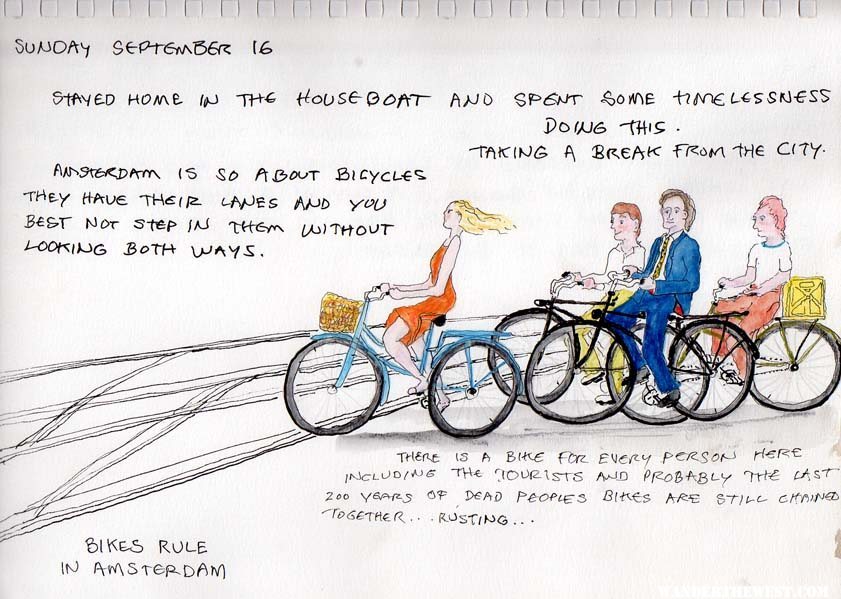 SUNDAY SEPTEMBER 16
STAYED HOME IN THE HOUSEBOAT AND SPENT SOME TIMELESSNESS
DOING THIS.
TAKING A BREAK FROM THE CITY.
AMSTERDAM IS SO ABOUT BICYCLES
THEY HAVE THEIR LANES AND YOU
BEST NOT STEP IN THEM WITHOUT
LOOKING BOTH WAYS.
THERE IS A BIKE FOR EVERY PERSON HERE
INCLUDING THE TOURISTS AND PROBABLY THE LAST
200 YEARS OF DEAD PEOPLES BIKES ARE STILL CHAINED
TOGETHER... RUSTING...
BIKES RULE
IN AMSTERDAM
WANDERTHEWEST.COM